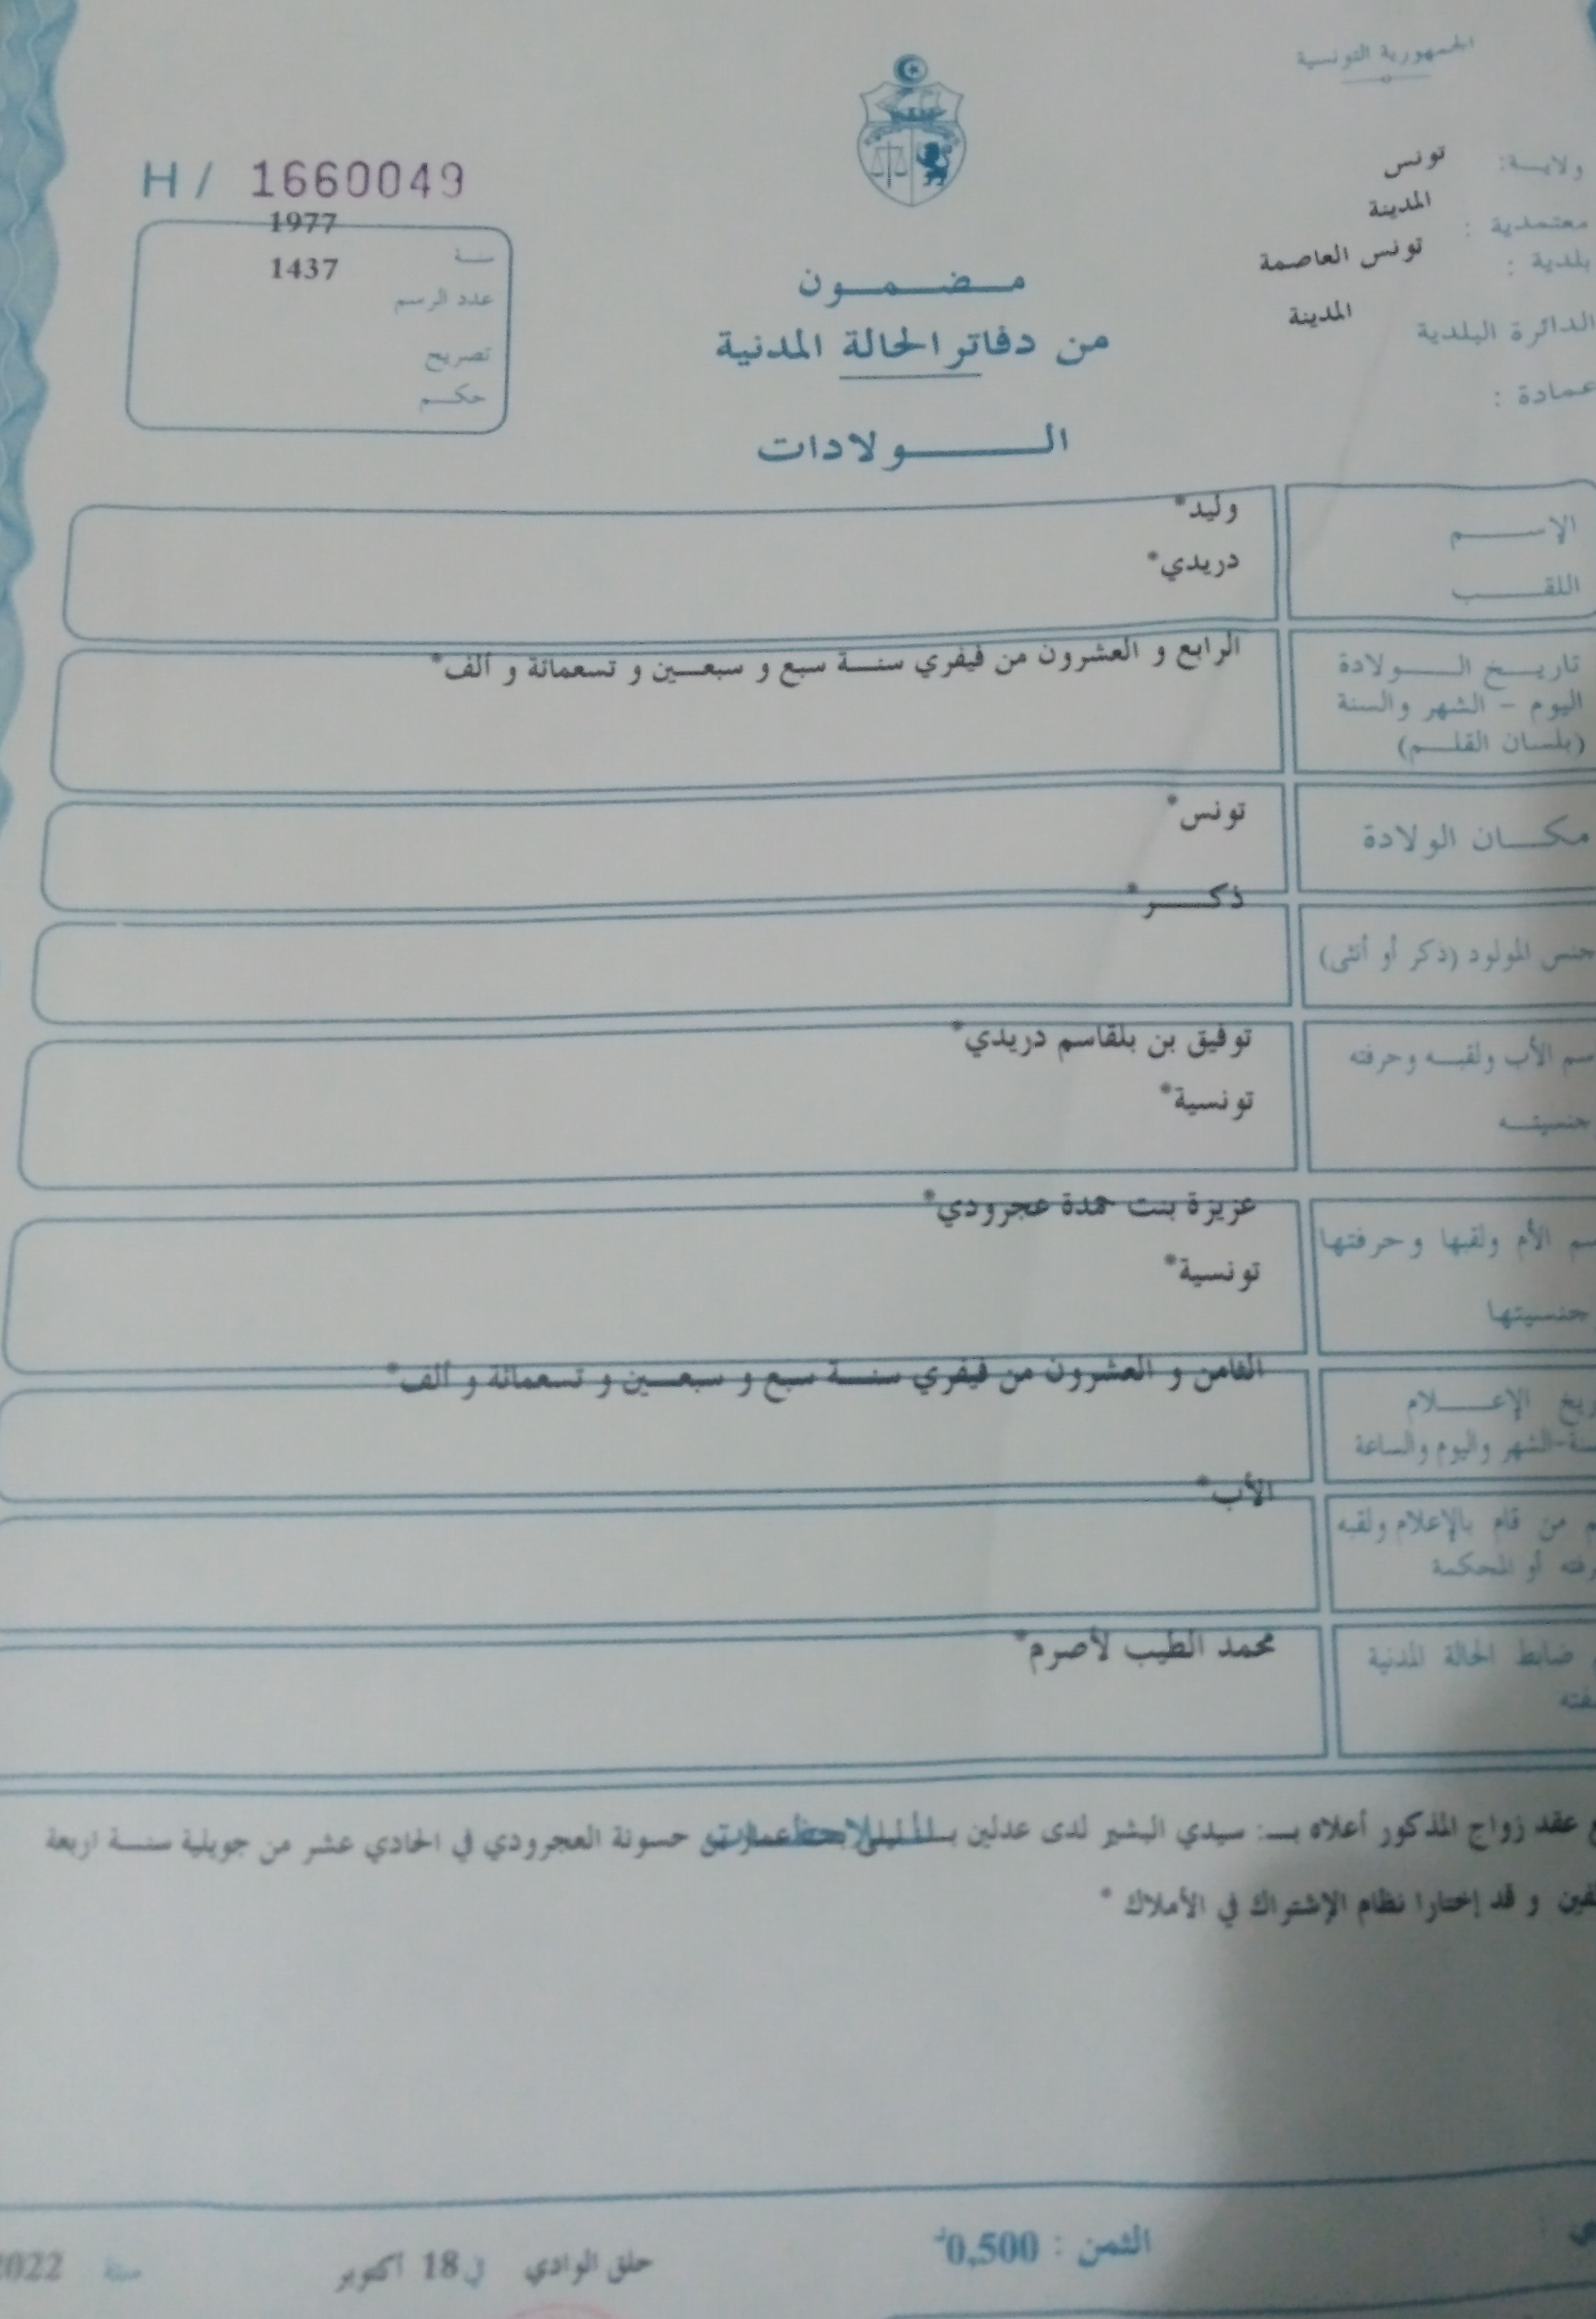 الجمهورية التونسية
ولاية: تونس
معتمدية : المدينة
بلدية : تونس العاصمة
الدائرة البلدية المدينة
عمادة :
H / 1660049
سنة 1977
عدد الرسم 1437
تصريح
حكم
مضمون
من دفاتر الحالة المدنية
الولادات
الاسم وليد*
اللقب دريدي*
تاريخ الولادة الرابع و العشرون من فيفري سنة سبع و سبعين و تسعمائة و ألف*
اليوم - الشهر والسنة
(بلسان القلم)
مكان الولادة تونس*
جنس المولود (ذكر أو أنثى) ذكر*
سم الأب ولقبه وحرفته توفيق بن بلقاسم دريدي*
جنسيته تونسية*
سم الأم ولقبها وحرفتها عزيزة بنت حمدة عجرودي*
جنسيتها تونسية*
ريخ الإعلام الثامن و العشرون من فيفري سنة سبع و سبعين و تسعمائة و ألف*
سنة-الشهر واليوم والساعة
م من قام بالإعلام ولقبه الأب*
رفته أو المحكمة
ضابط الحالة المدنية محمد الطيب لأصرم*
فته
عقد زواج المذكور أعلاه بـ: سيدي البشير لدى عدلين حسونة العجرودي في الحادي عشر من جويلية سنة اربعة
لفين و قد إختارا نظام الإشتراك في الأملاك *
الثمن : 0,500د
حلق الوادي في 18 أكتوبر سنة 2022